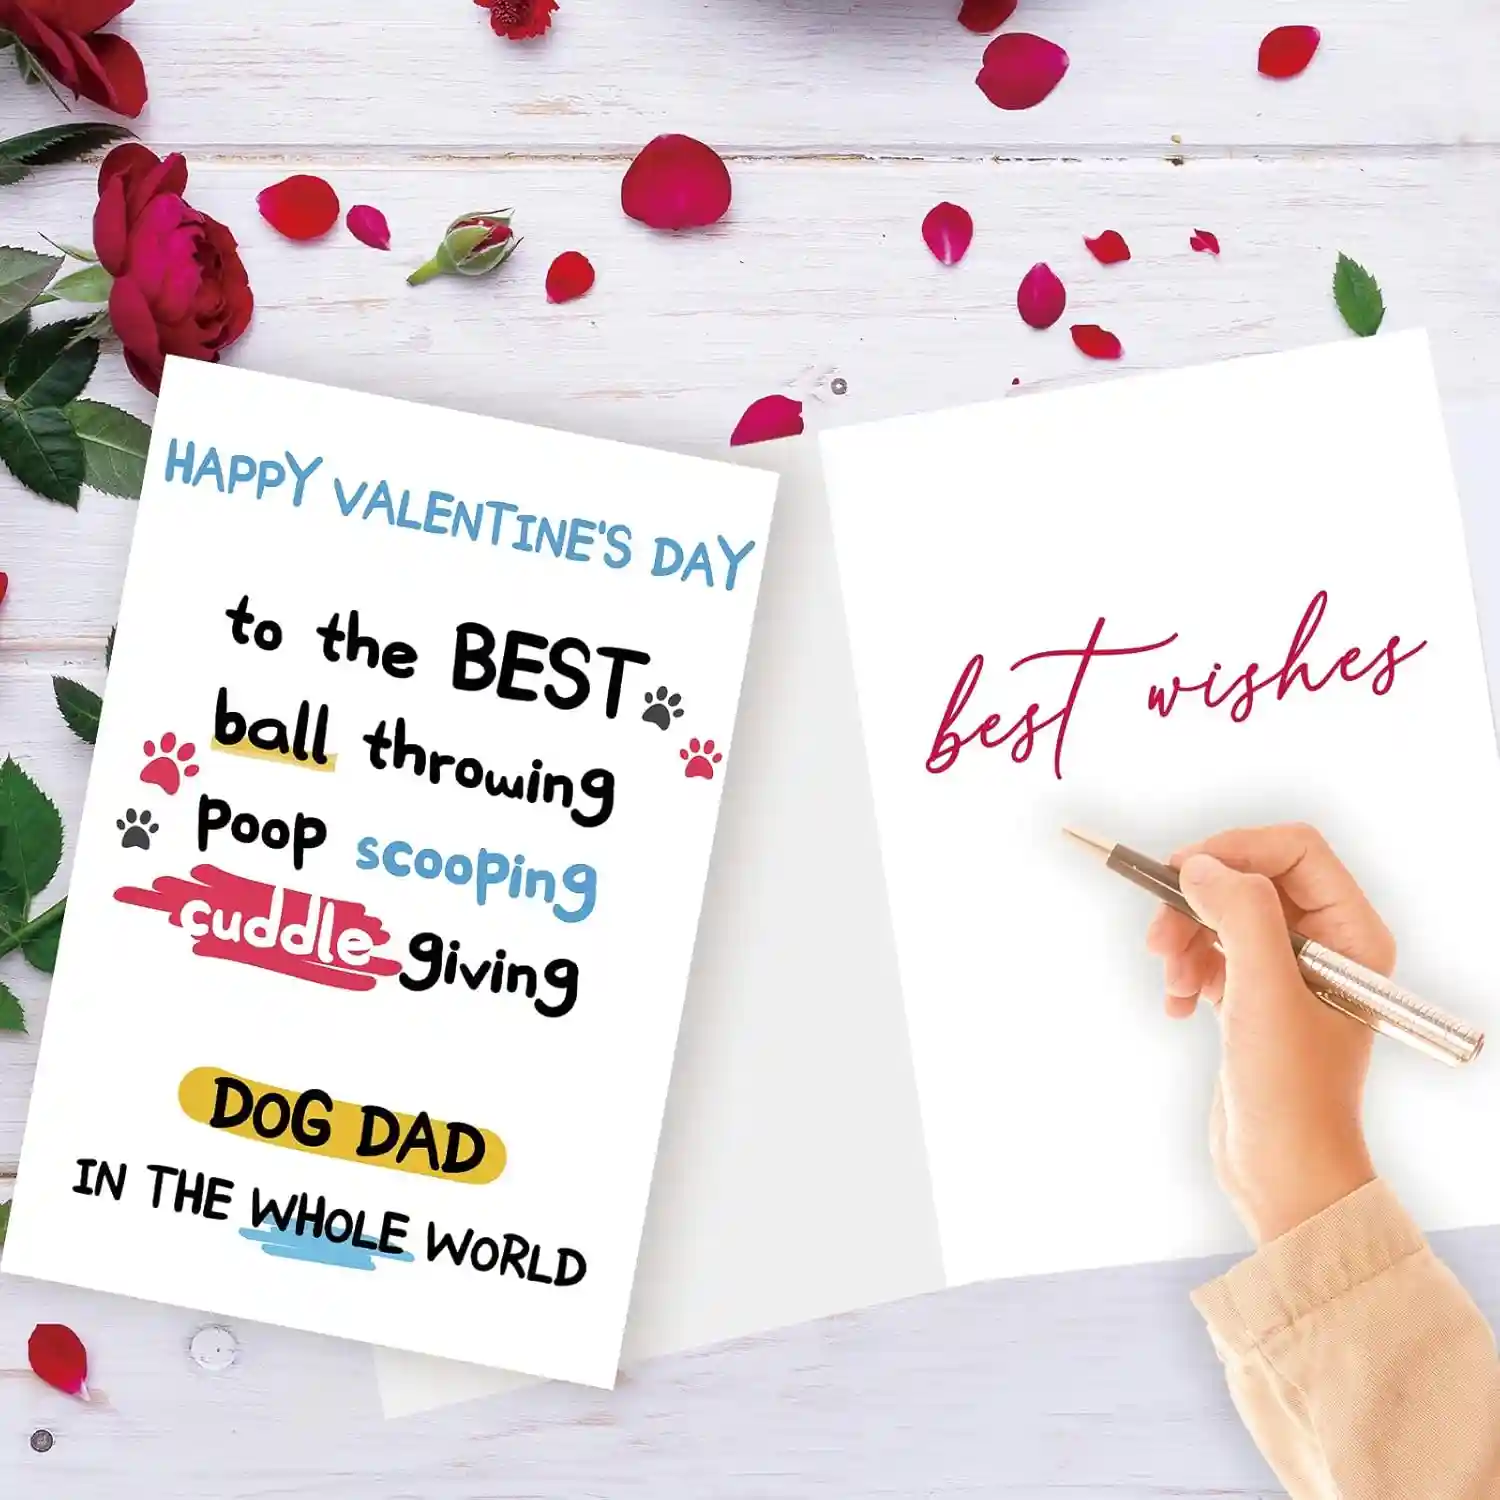 HAPPY VALENTINE'S DAY
to the BEST
ball throwing
poop scooping
cuddle giving
DOG DAD
IN THE WHOLE WORLD
best wishes